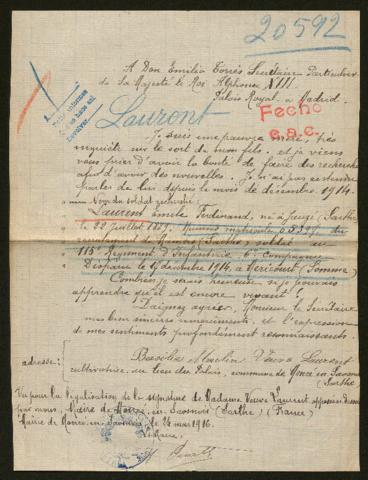 20592
A Don Emilio Torrès Secrétaire Particulier
de Sa Majesté le Roi Alphonse XIII.
Palais Royal à Madrid.
Laurent
Fecho
e.a.c.
Je suis une pauvre mère, très
inquiète sur le sort de mon fils, et je viens
vous prier d'avoir la bonté de faire des recherches
afin d'avoir des nouvelles. Je n'ai pas entendu
parler de lui depuis le mois de décembre 1914.
Nom du soldat recherché:
Laurent Emile Ferdinand, né à (Sarthe
le 22 Juillet Numéro matricule du
recrutement de Mamers (Sarthe) soldat au
115e Régiment d'Infanterie 6e Compagnie
Disparu le décembre 1914 à Méricourt (Somme)
Combien je serais heureuse si je pouvais
apprendre qu'il est encore vivant!
Daignez agréer, Monsieur le Secrétaire
mes bien sincères remerciements, et l'expression
de mes sentiments profondément reconnaissants.
adresse:
Veuve Laurent
cultivatrice, au lieu des commune de Moncé en Saosnois
(Sarthe)
Vu pour la légalisation de la signature de Madame Veuve Laurent apposée
par nous, Maire de Moncé-en-Saosnois (Sarthe) (France)
Mairie de Moncé-en-Saosnois, le 24 mars 1916.
Le Maire,